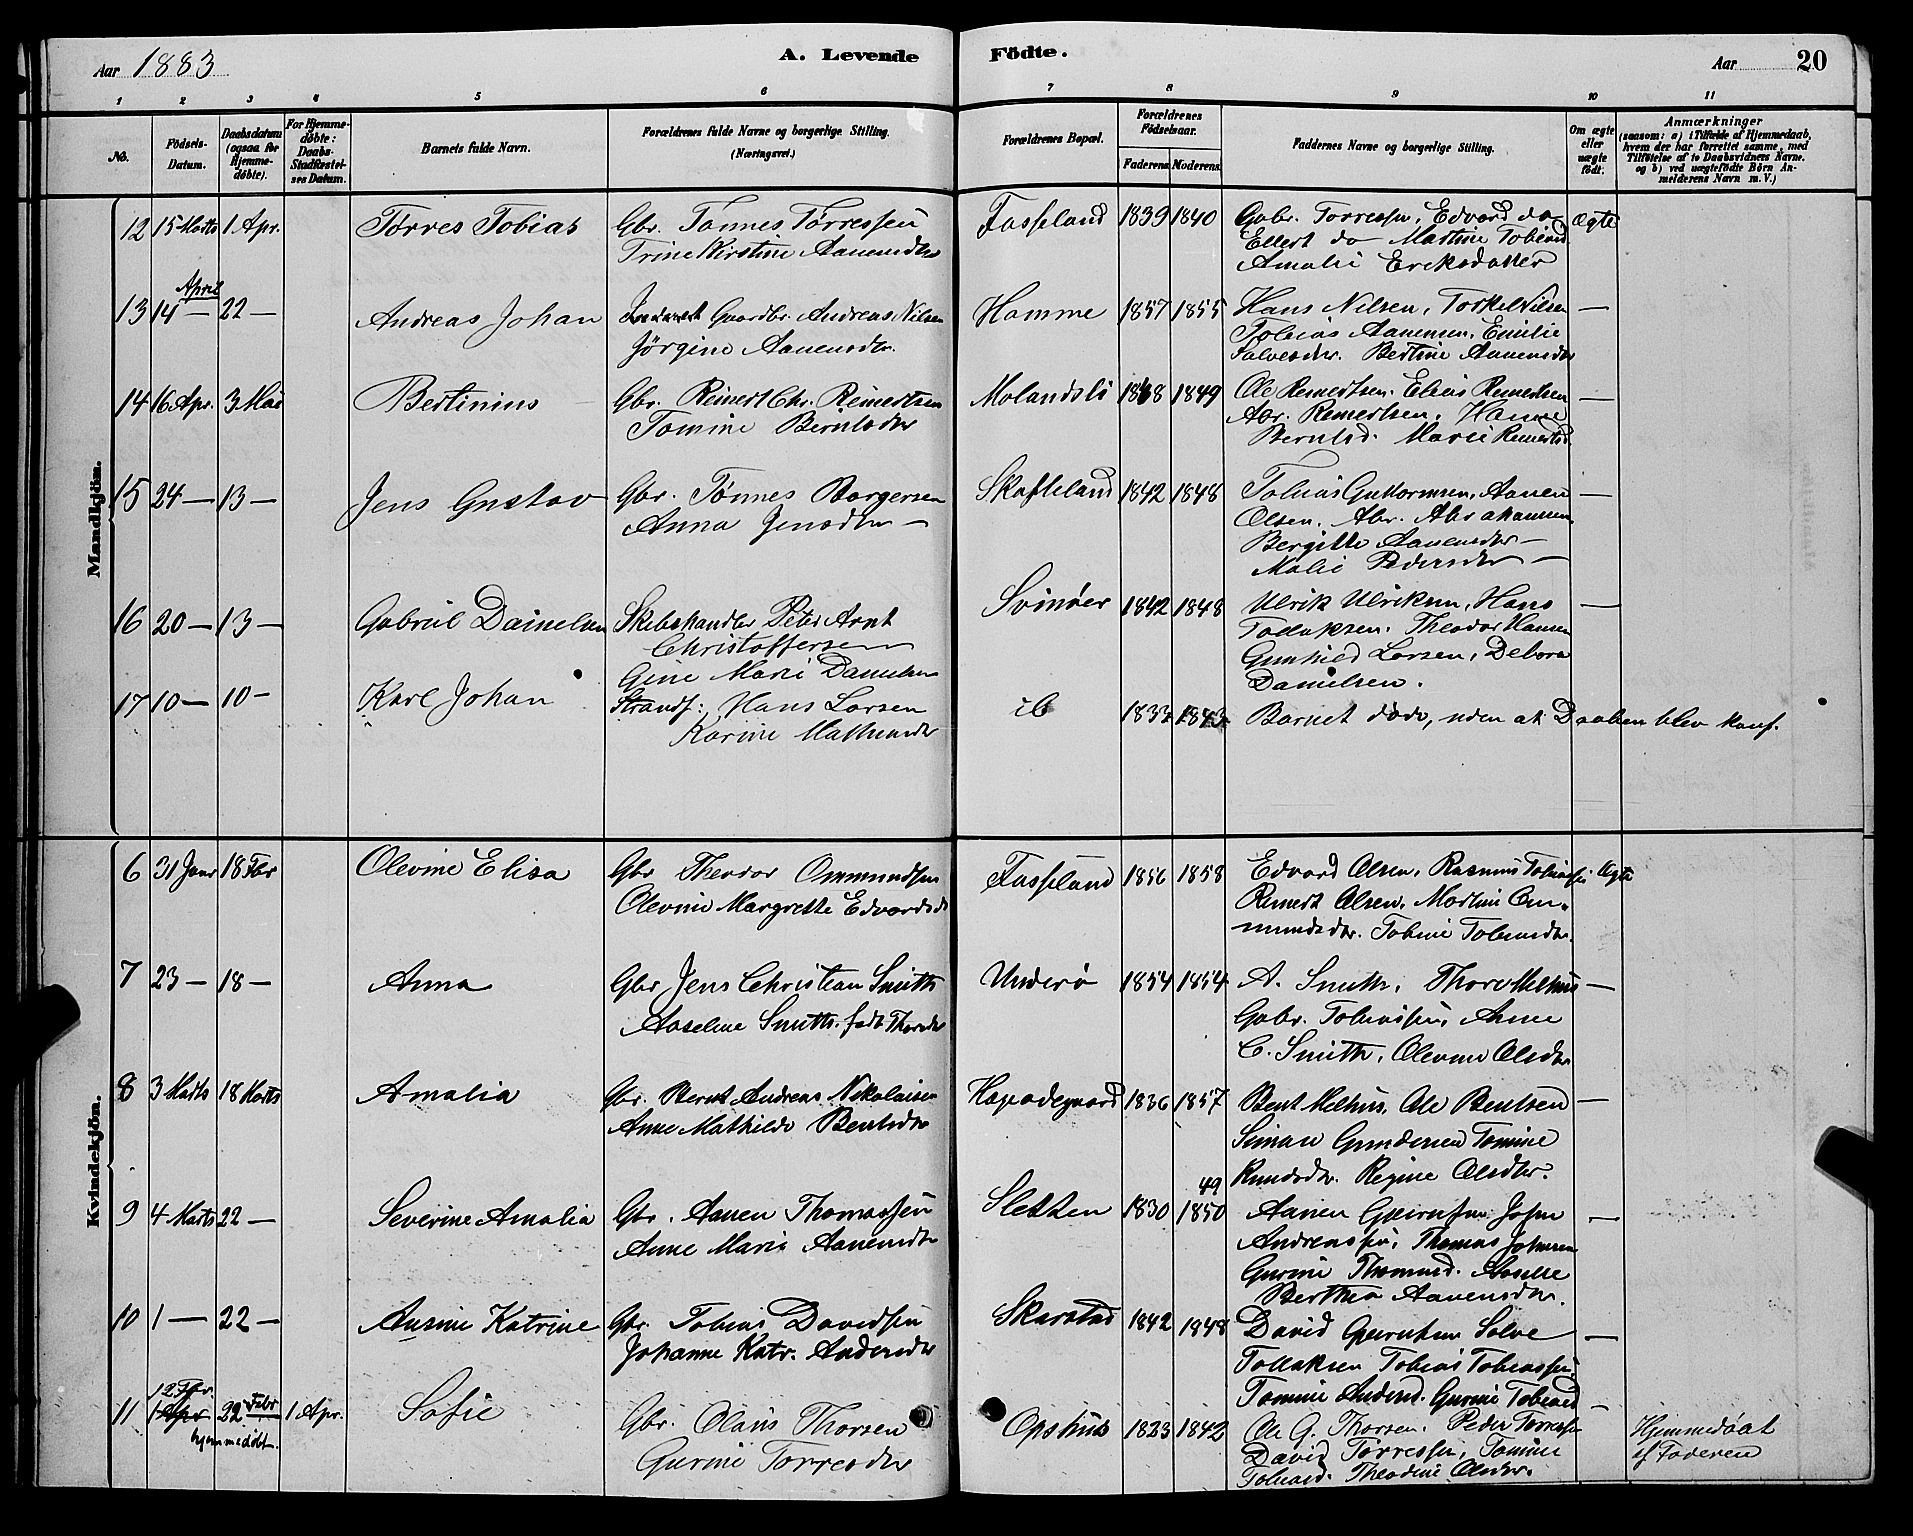 Aar 1883
A. Levende Födte.
Aar 20
1 2 3 4 5 6 7 8 9 10 11
No.
Födsels-Datum.
Daabsdatum (ogsaa for Hjemme-döbte).
For Hjemme-döbte: Daabs-Stadfæstel-ses Datum.
Barnets fulde Navn.
Forældrenes fulde Navne og borgerlige Stilling. (Næringsvei.)
Forældrenes Bopæl.
Forældrenes Födselsaar.
Faderens Moderens
Faddernes Navne og borgerlige Stilling.
Om ægte eller uægte födt.
Anmærkninger
(saasom: a) i Tilfælde af Hjemmedaab, hvem der har forrettet samme, med Tilföielse af to Daabsvidners Navne. og b) ved uægtefödte Börn An-melderens Navn m. V.)
Mandkjön.
12 15 Marts 1 Apr. Tørres Tobias Gbr. Tønnes Tørressen Fasseland 1839 1840 Gabr. Torressen, Edvard do Ægte
Trine Kirstine Aanensdtr Ellert do Martine Tobiasd
Amalie Eriksdatter
13 April 14 — 22 — Andreas Johan Gaardbr. Andreas Nilsen Homme 1857 1855 Hans Nilsen, Torkel Nilsen —
Jørgine Aanensdtr. Tobias Aanensen, Emilie
Salvesdtr. Bertine Aanensdtr
14 16 Apr. 3 Mai Bertinius Gbr. Reinert Chr. Reinertsen Molandsli 1848 1849 Ole Reinertsen. Elias Reinertsen —
Tomine Berntsdtr Abr. Reinertsen. Hanne
Berntsd. Marie Reinertsd
15 24 — 13 — Jens Gustav Gbr. Tønnes Borgersen Skofteland 1842 1848 Tobias Guttormsen, Aanen —
Anna Jensdtr — Olsen. Abr. Abrahamsen,
Bergitte Aanensdtr —
Malie Pedersdtr —
16 20 — 13 — Gabriel Dainelsen Skibshandler Peter Arnt Svinøer 1842 1848 Ulrik Ulriksen, Hans —
Christoffersen Tollaksen. Theodor Hansen
Gine Marie Danielsen Gunhild Larsen, Debora
Danielsen.
17 10 — 10 — Karl Johan Strandf: Hans Larsen ib 1833 1843 Barnet døde, uden at Daaben blev konf.
Karine Mathiasdtr
Kvindekjön.
6 31 Janr 18 Fbr Olevine Elisa Gbr Theodor Ommundsen Fasseland 1856 1858 Edvard Olsen, Rasmus Tobiassen Ægte
Olevine Margrethe Edvardsd Reinert Olsen, Martine Om-
mundsdtr. Tobine Tobiasdtr.
7 23 — 18 — Anna Gbr Jens Christian Smith Underø 1854 1854 A. Smith, Thore Melhus —
Aaseline Smith. født Thorsdtr Gabr. Tobiassen, Anne
C. Smith, Olevine Olsdtr
8 3 Marts 18 Marts Amalia Gbr. Bernt Andreas Nikolaisen 1836 1857 Bent Melhus, Ole Bentsen —
Anne Mathilde Bentsdtr Simon Gundersen Tomine
Knudsdtr. Regine Olsdtr.
9 4 Marts 22 — Severine Amalia Gbr. Aanen Thomassen Sletten 1830 49 1850 Aanen Gjeruldsen John —
Anne Marie Aanensdtr Andreassen, Thomas Johnsen
Gurine Thomasd. Aaselle
Berthea Aanensdtr.
10 1 — 22 — Ausine Katrine Gbr. Tobias Davidsen Skarstad 1842 1848 David Gjeruldsen Salve —
Johanne Katr. Andersdtr Tollaksen Tobias Tobiassen,
Tomine Andersd. Gurine Tobiasd
11 12 Fbr. 1 Apr 22 Febr hjemmedøbt. 1 Apr. Sofie Gbr. Olaus Thorsen Opshus 1823 1842 Ole G. Thorsen. Peder Torressen — Hjemmedøbt
Gurine Torresdtr David Torressen, Tomine af Faderen
Tobiasd. Theodine Olsdtr.